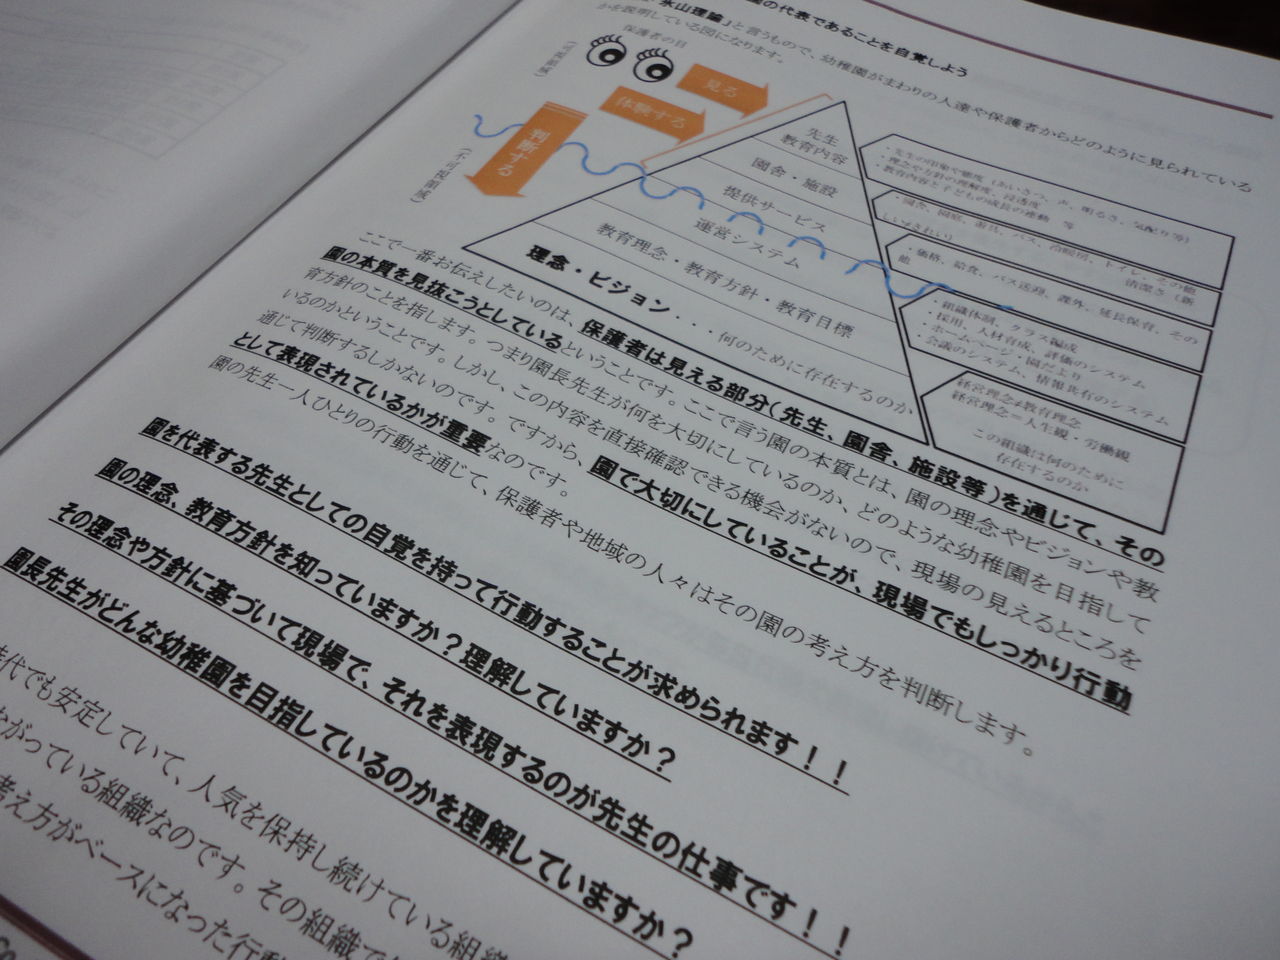 園の代表であることを自覚しよう
氷山理論」と言うもので、幼稚園がまわりの人達や保護者からどのように見られている
かを説明している図になります。
保護者の目
(可視領域)
見る
体験する
判断する
(不可視領域)
先生
教育内容
園舎・施設
提供サービス
運営システム
教育理念・教育方針・教育目標
理念・ビジョン・・・何のために存在するのか
・先生の印象や態度（あいさつ、声、明るさ、気配り等）
・理念や方針の理解度、浸透度
・教育内容と子どもの成長の連動　等
・園舎、園庭、遊具、バス、冷暖房、トイレ、その他
清潔さ（新しい／きれい）
・価格、給食、バス送迎、課外、延長保育、その他
・組織体制、クラス編成
・採用、人材育成、評価のシステム
・ホームページ・園だより
・会議のシステム、情報共有のシステム
経営理念≠教育理念
経営理念＝人生観・労働観
この組織は何のために
存在するのか
ここで一番お伝えしたいのは、保護者は見える部分（先生、園舎、施設等）を通じて、その
園の本質を見抜こうとしているということです。ここで言う園の本質とは、園の理念やビジョンや教
育方針のことを指します。つまり園長先生が何を大切にしているのか、どのような幼稚園を目指して
いるのかということです。しかし、この内容を直接確認できる機会がないので、現場の見えるところを
通じて判断するしかないのです。ですから、園で大切にしていることが、現場でもしっかり行動
として表現されているかが重要なのです。
園の先生一人ひとりの行動を通じて、保護者や地域の人々はその園の考え方を判断します。
園を代表する先生としての自覚を持って行動することが求められます！！
園の理念、教育方針を知っていますか？理解していますか？
その理念や方針に基づいて現場で、それを表現するのが先生の仕事です！！
園長先生がどんな幼稚園を目指しているのかを理解していますか？
時代でも安定していて、人気を保持し続けている組織
ながっている組織なのです。その組織で
考え方がベースになった行動